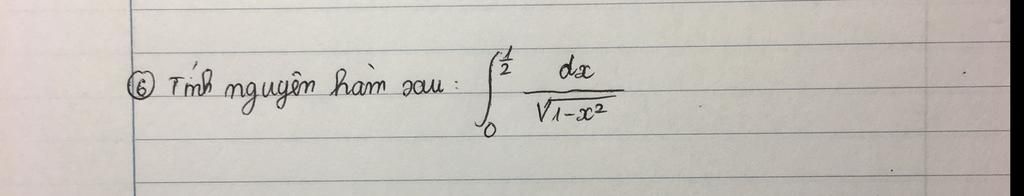 ⑥ Tính nguyên hàm sau: ∫₀^{1/2} dx/√(1-x²)